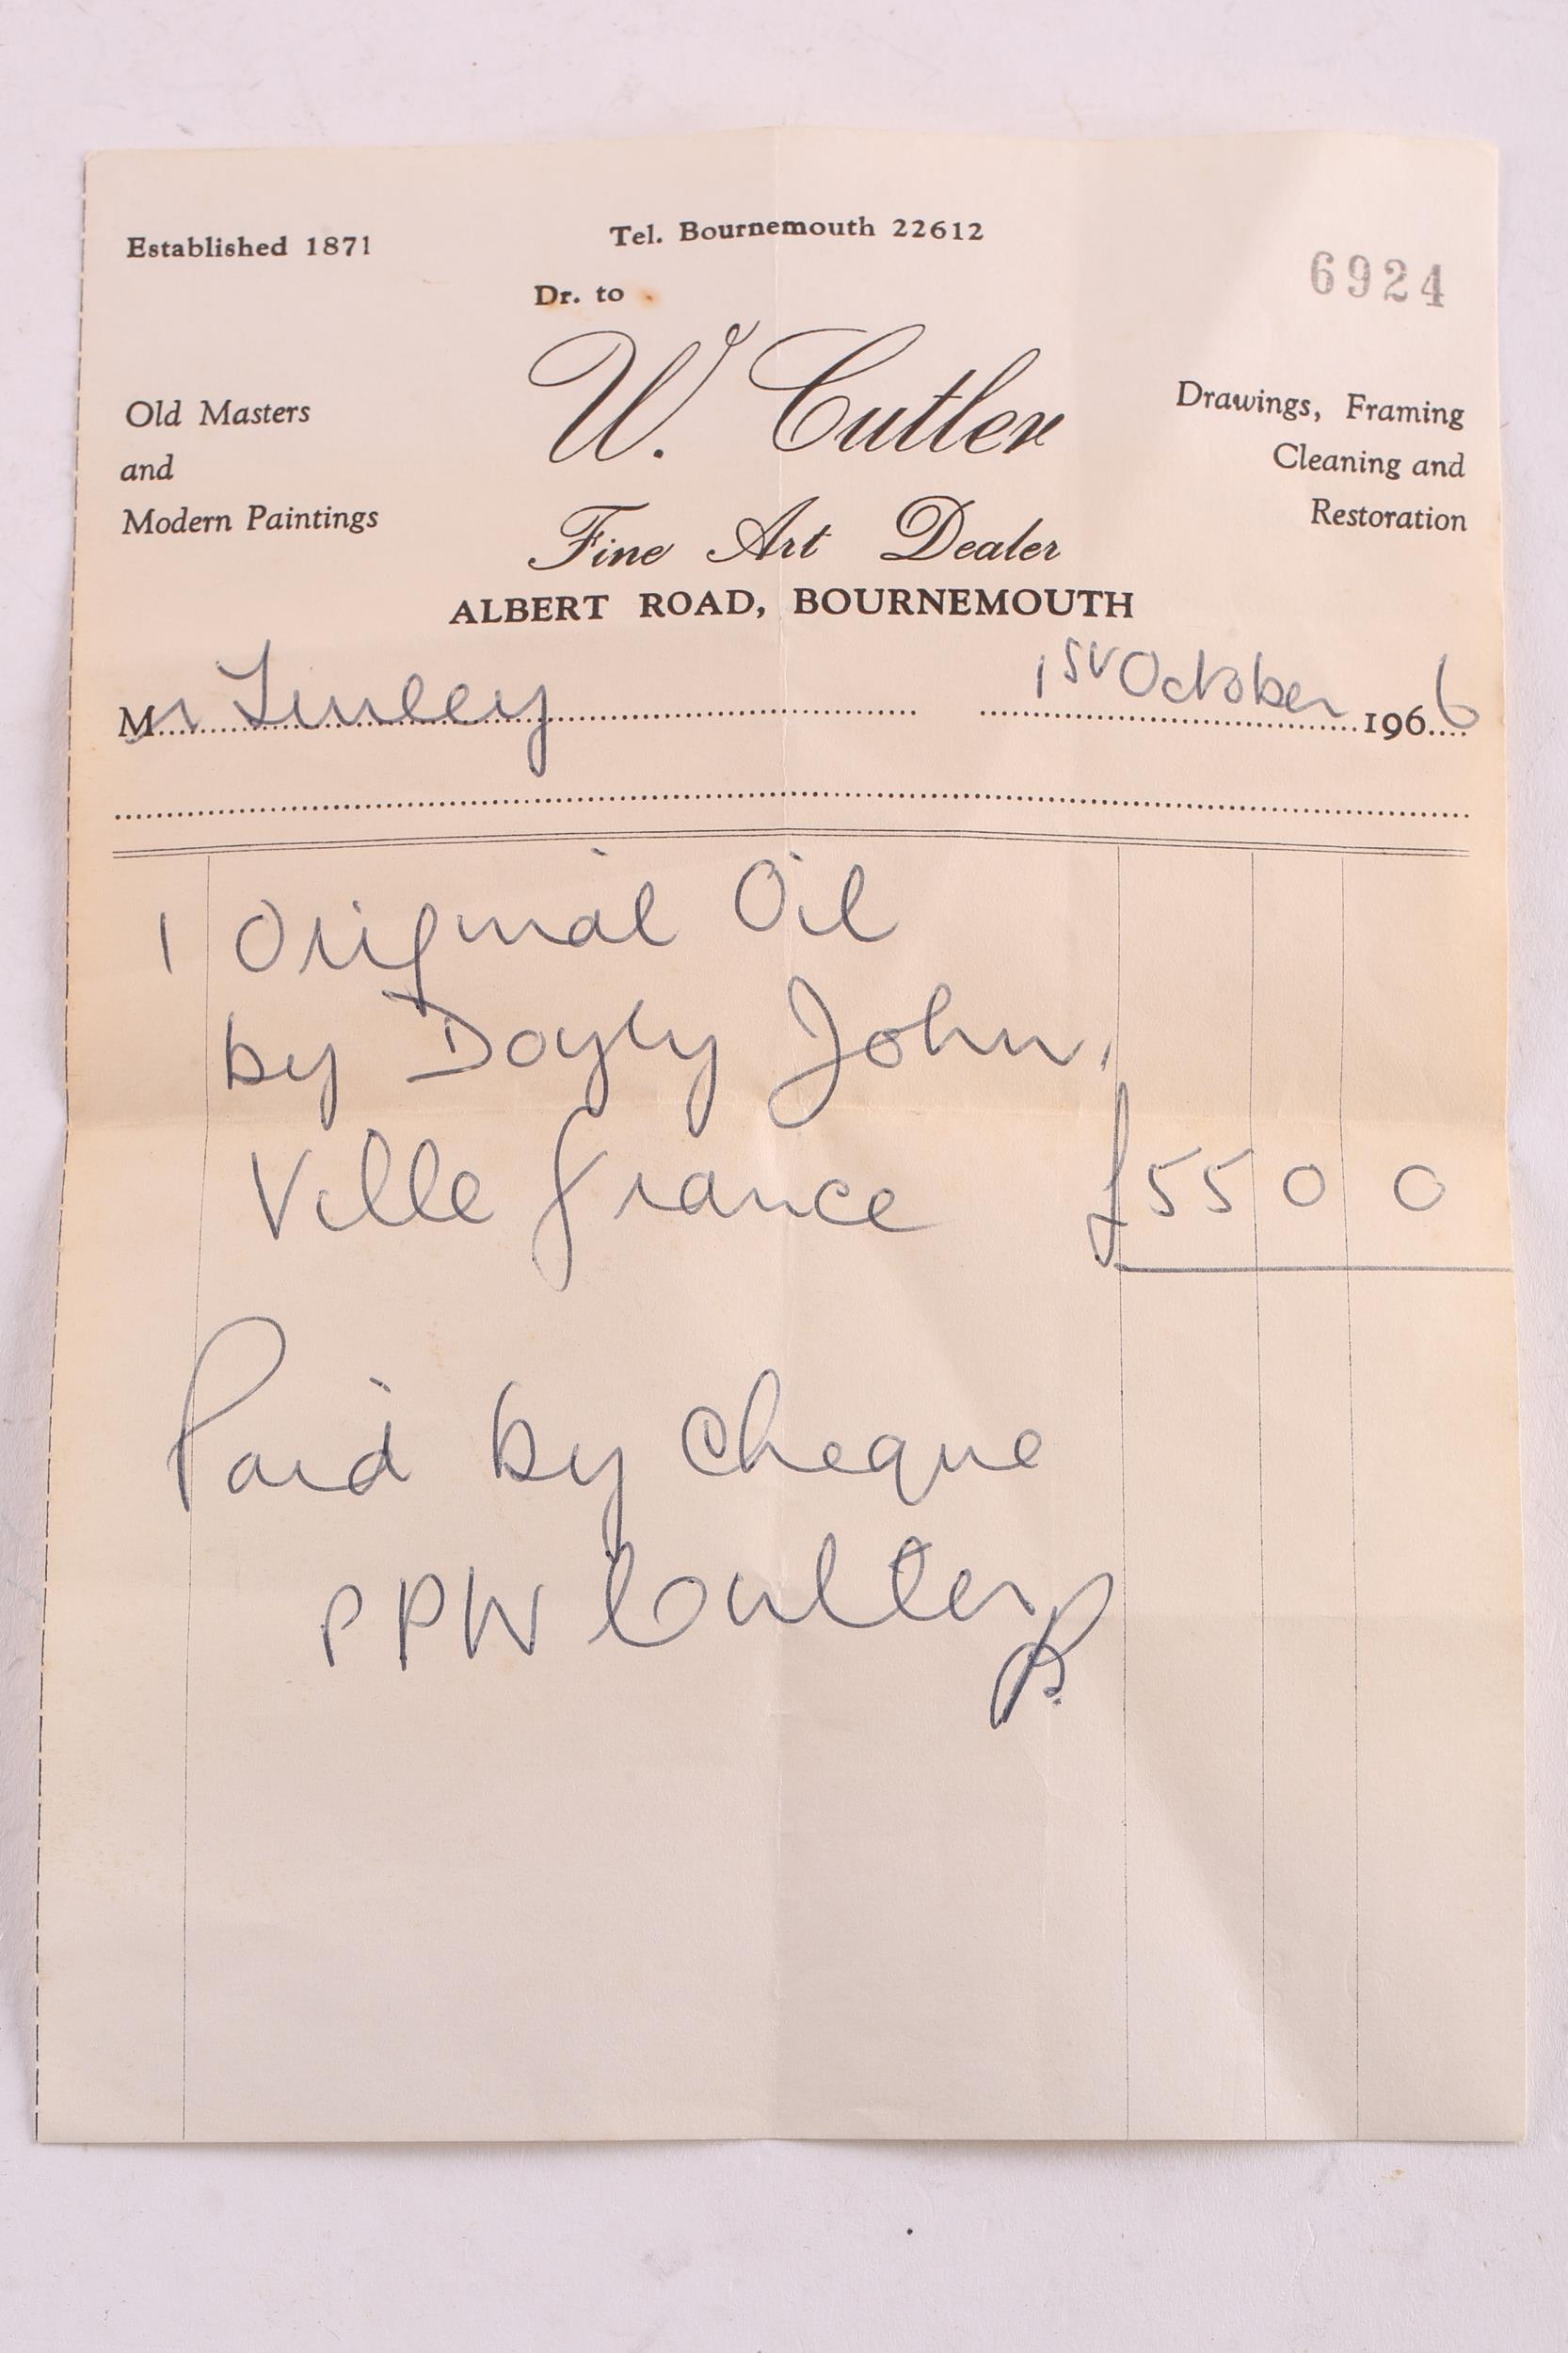 Established 1871
Tel. Bournemouth 22612
6924
Dr. to
W. Cutler
Old Masters
and
Modern Paintings
Drawings, Framing
Cleaning and
Restoration
Fine Art Dealer
ALBERT ROAD, BOURNEMOUTH
Mr Linley 1st October 1966
1 Original Oil
by Doyly John,
Ville france £55 0 0
Paid by Cheque
PPW Culter